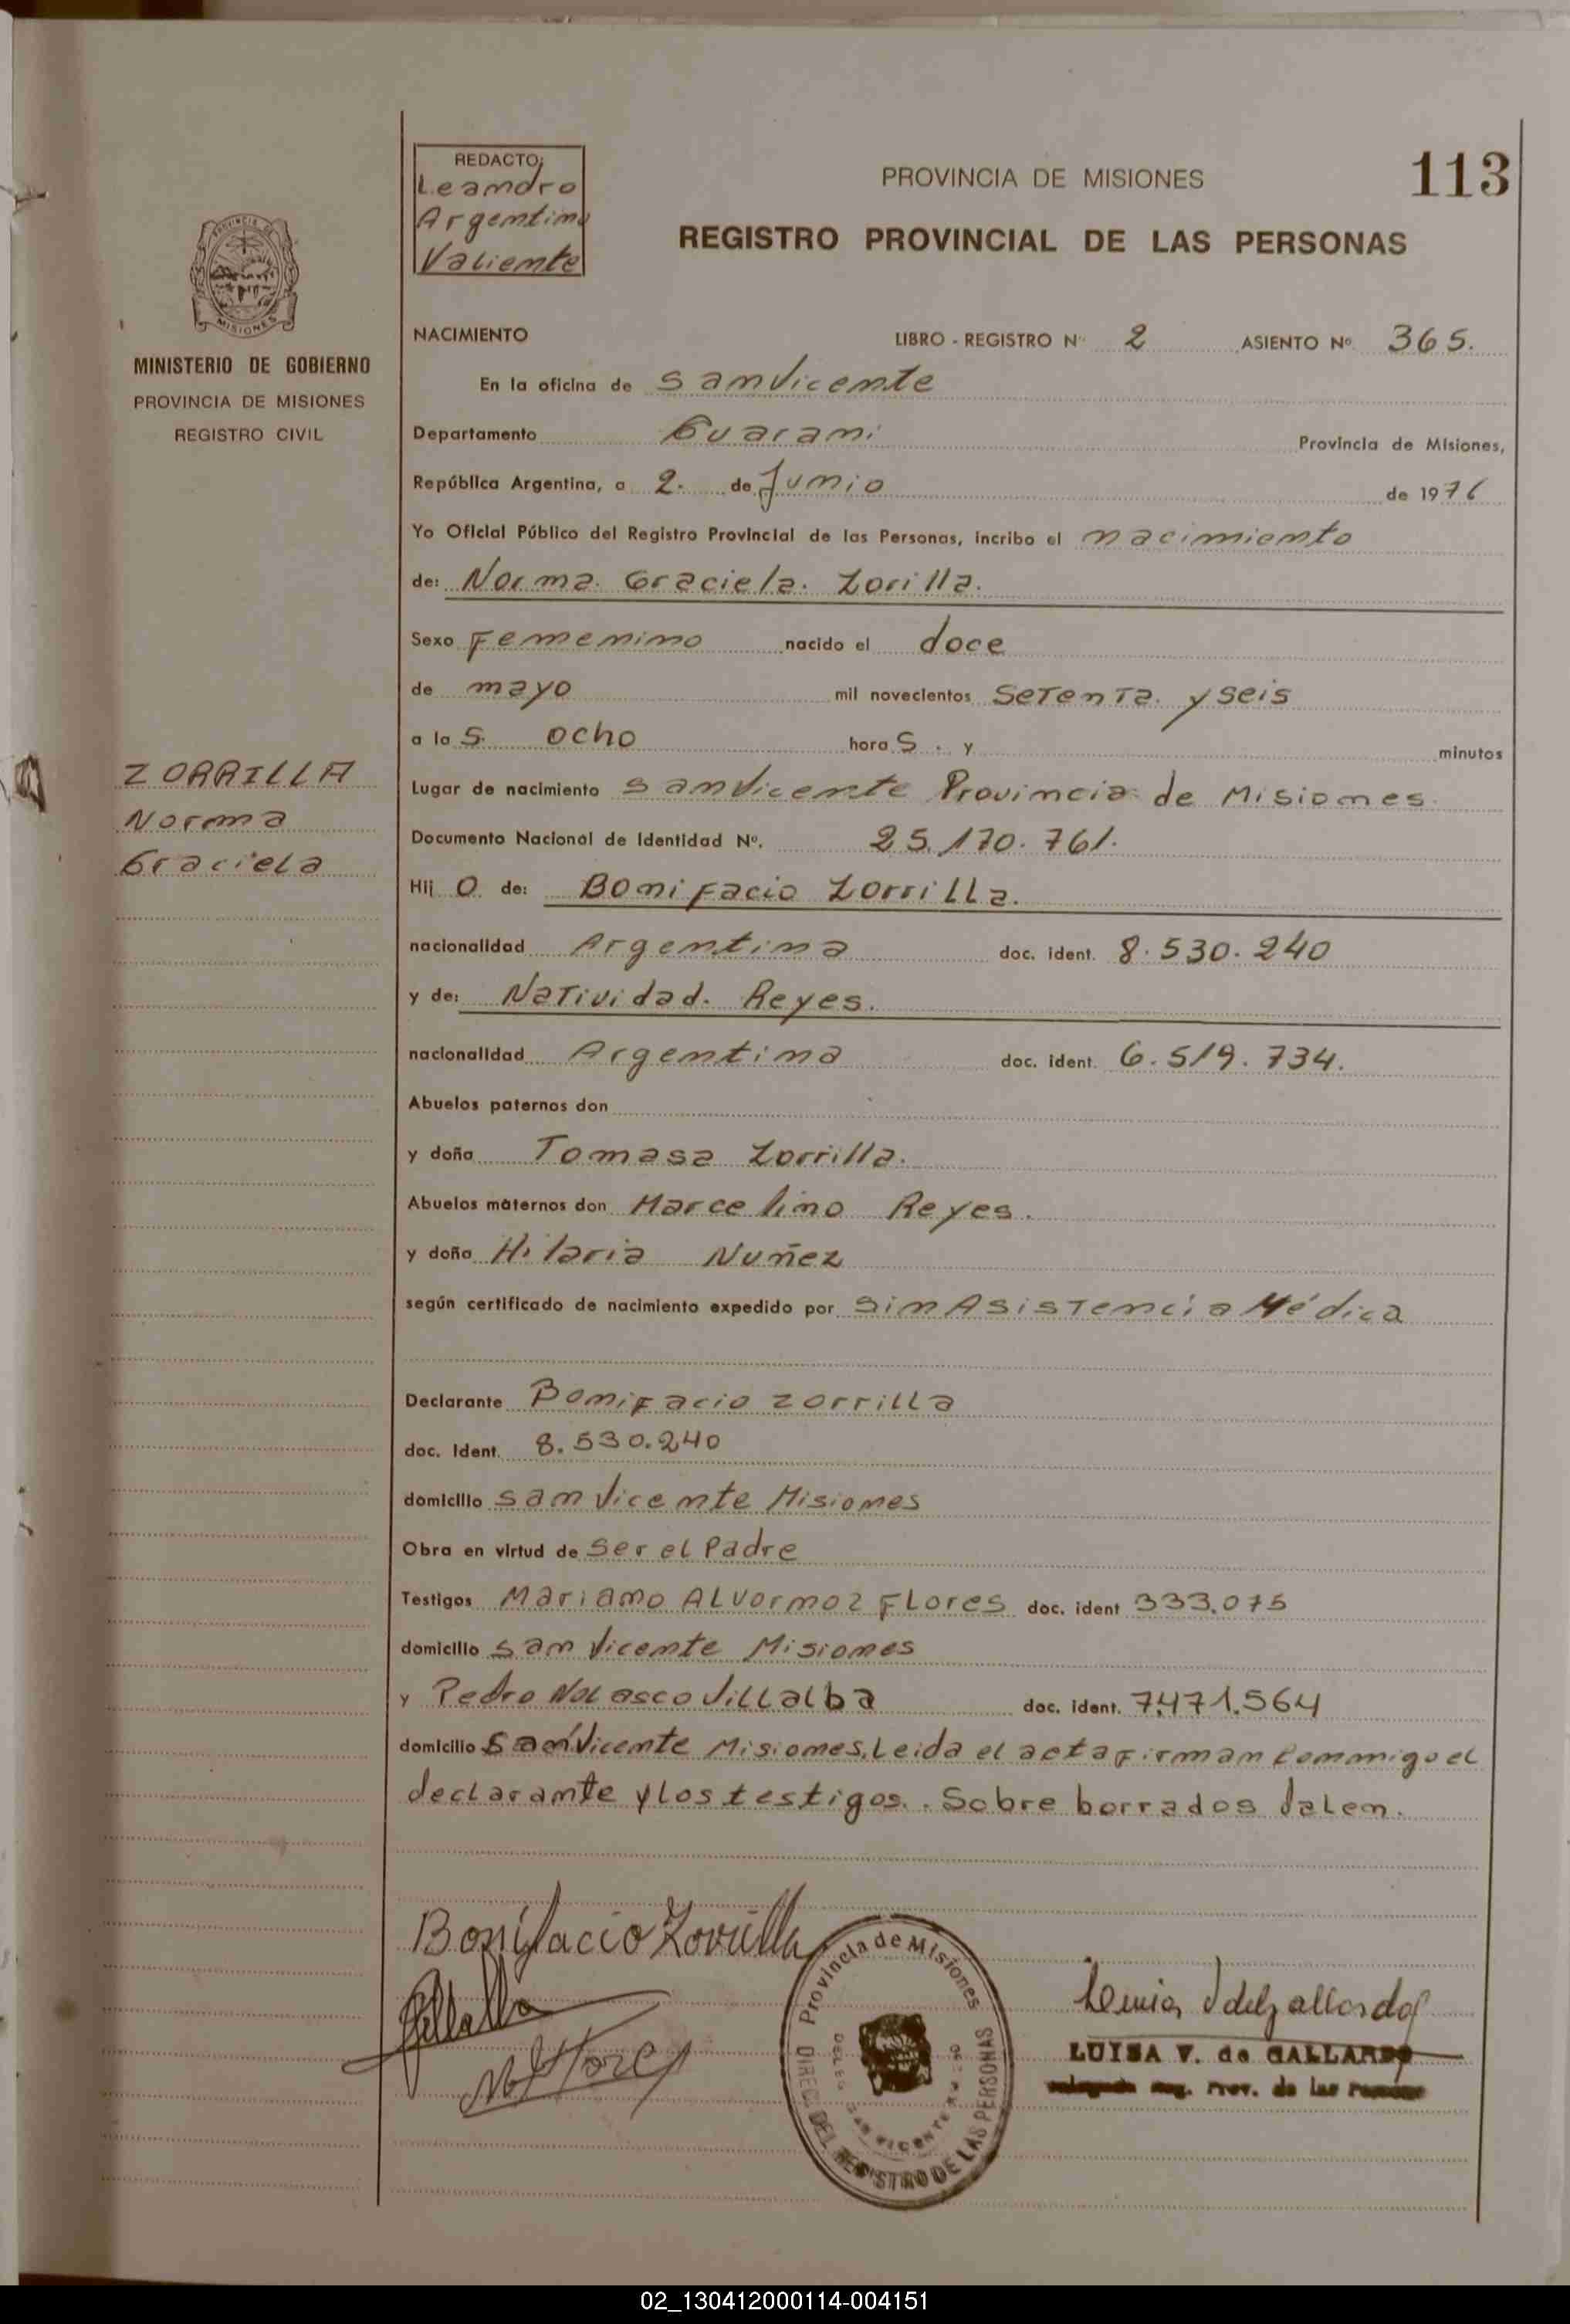 113
REDACTO:
Leandro
Argentino
Valiente
PROVINCIA DE MISIONES
REGISTRO PROVINCIAL DE LAS PERSONAS
PROVINCIA DE
MISIONES
MINISTERIO DE GOBIERNO
PROVINCIA DE MISIONES
REGISTRO CIVIL
NACIMIENTO LIBRO - REGISTRO N° 2 ASIENTO Nº 365.
En la oficina de San Vicente
Departamento Guarani Provincia de Misiones,
República Argentina, a 2. de Junio de 1976
Yo Oficial Público del Registro Provincial de las Personas, incribo el nacimiento
de: Norma. Graciela. Zorilla.
Sexo Femenino nacido el doce
de mayo mil novecientos Setenta. y seis
a las ocho horas. y minutos
ZORRILLA
Norma
Graciela
Lugar de nacimiento San Vicente Provincia de Misiones.
Documento Nacional de Identidad Nº. 25.170.761.
Hij O de: Bonifacio Zorrilla.
nacionalidad Argentina doc. ident. 8.530.240
y de: Natividad. Reyes.
nacionalidad Argentina doc. ident. 6.519.734.
Abuelos paternos don
y doña Tomasa Zorrilla.
Abuelos maternos don Marcelino Reyes.
y doña Hilaria Nuñez
según certificado de nacimiento expedido por Sin Asistencia Médica
Declarante Bonifacio Zorrilla
doc. Ident. 8.530.240
domicilio San Vicente Misiones
Obra en virtud de Ser el Padre
Testigos Mariano Alvormoz Flores doc. ident 333.075
domicilio San Vicente Misiones
y Pedro Nolasco Villalba doc. ident. 7.471.564
domicilio San Vicente Misiones. Leida el acta firman conmigo el
declarante y los testigos. Sobre borrados Valen.
Bonifacio Zorrilla
Villalba
M A Flores
Provincia de Misiones
DIREC. DEL REGISTRO DE LAS PERSONAS
SAN VICENTE
Luisa V de Gallardo
LUISA V. de GALLARDO
Reg. Prov. de las Personas
02_130412000114-004151